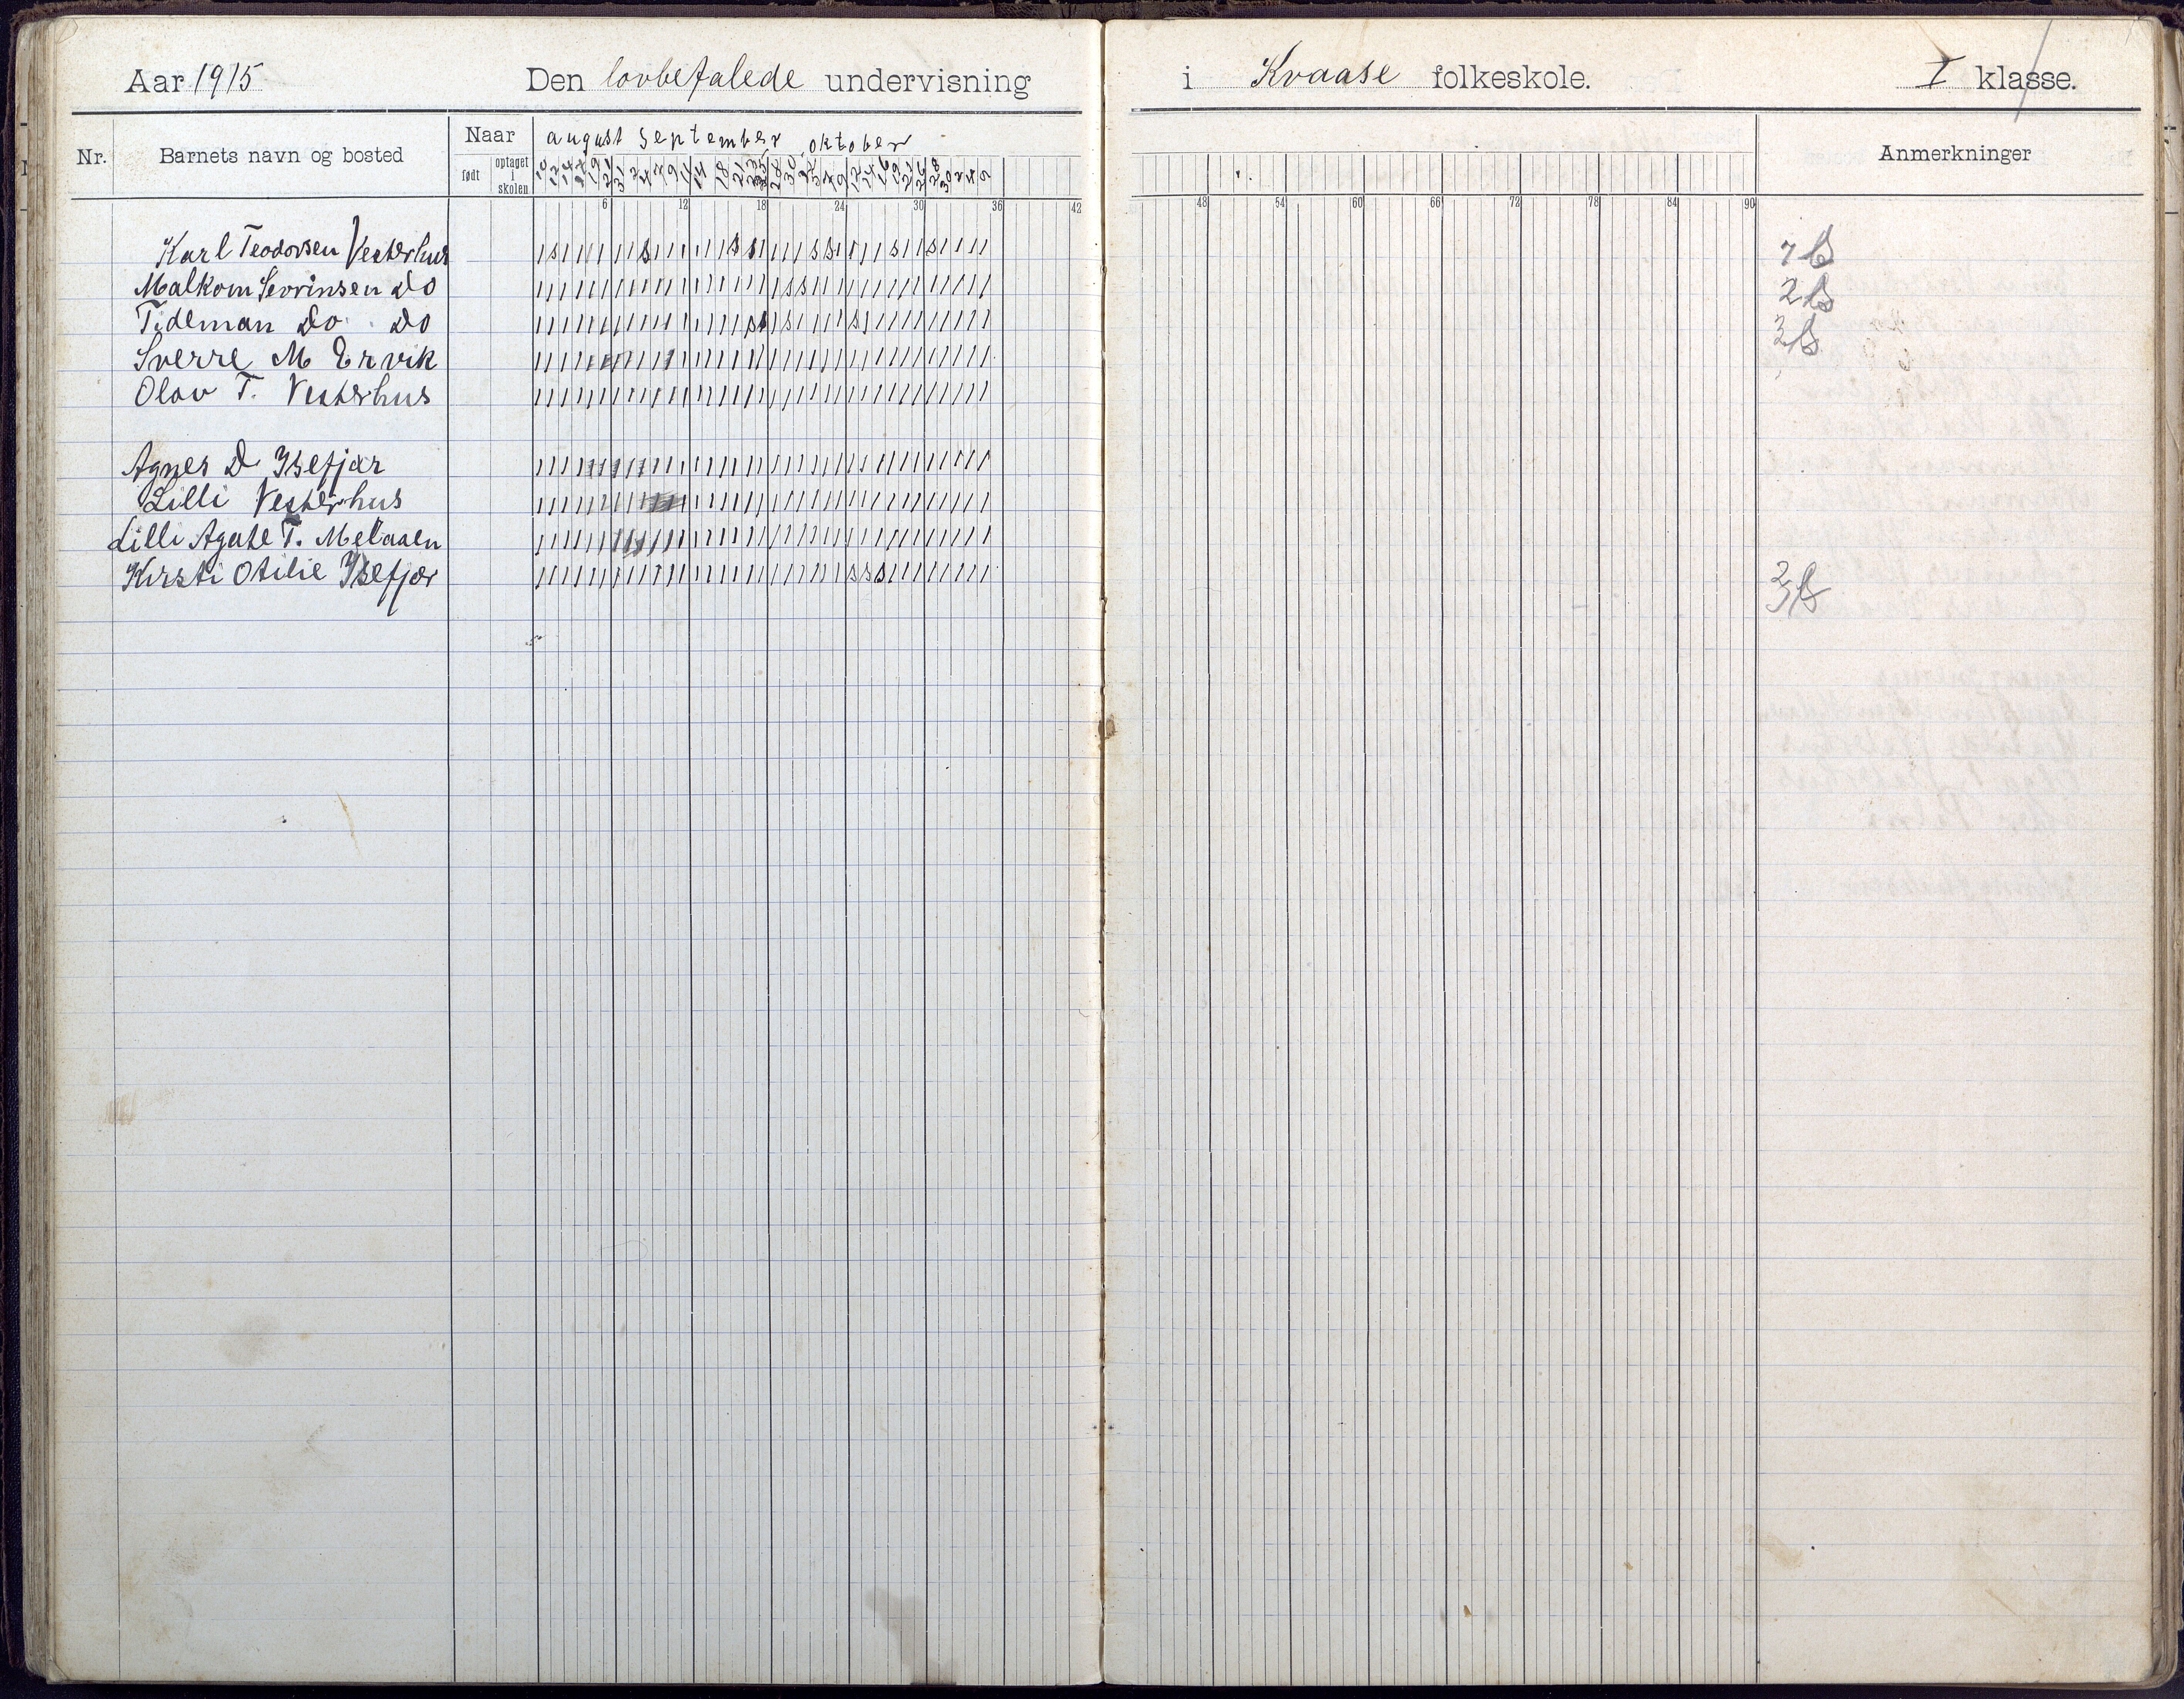 Aar 1915 Den lovbefalede undervisning i Kvaase folkeskole. I klasse.
Nr. Barnets navn og bosted Naar august September oktober Anmerkninger
født optaget i skolen
6 12 18 24 30 36 42 48 54 60 66 72 78 84 90
Karl Teodorsen Vesterhus 7 s
Malkom Sevrinsen do 2 s
Tideman do do 3 s
Sverre M Ervik
Olav T. Vesterhus
Agnes D Ysefjær
Lilli Vesterhus
Lilli Agate T.
Kirsti Otilie Ysefjær 3 s